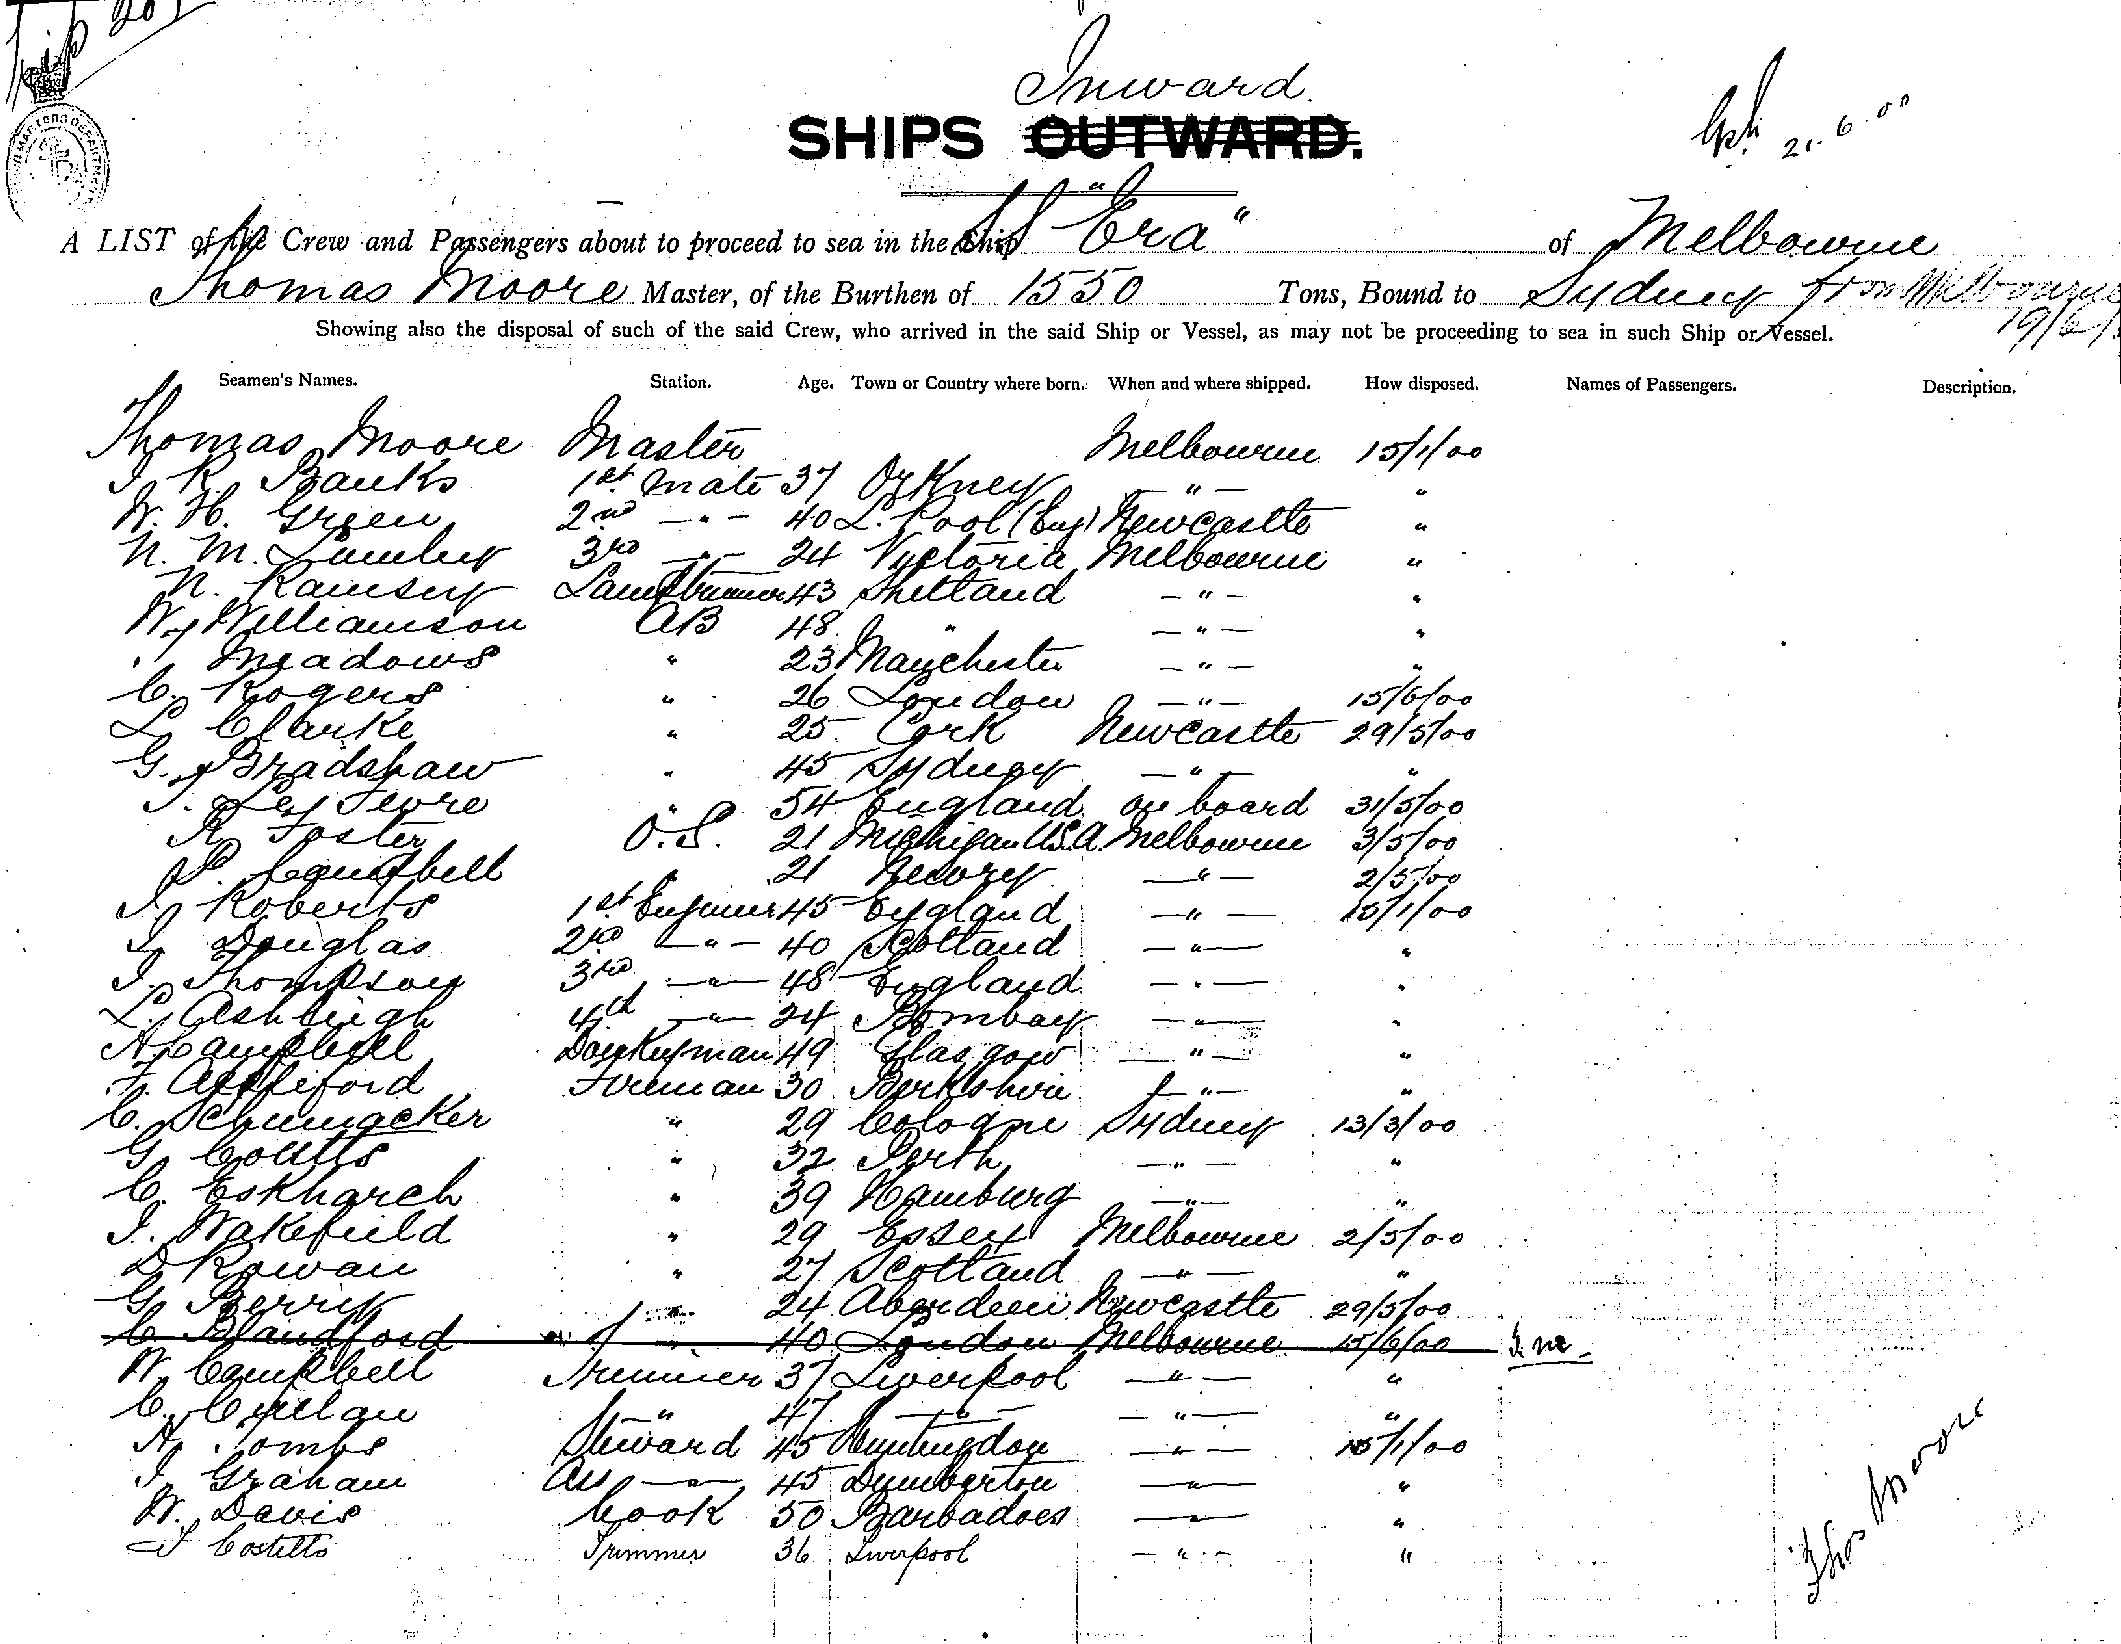 Inward.
SHIPS OUTWARD.
21.6.00
A LIST of the Crew and Passengers about to proceed to sea in the Ship SS "Era" of Melbourne
Thomas Moore Master, of the Burthen of 1550 Tons, Bound to Sydney from Melbourne
19/6/
Showing also the disposal of such of the said Crew, who arrived in the said Ship or Vessel, as may not be proceeding to sea in such Ship or Vessel.
Seamen's Names. Station. Age. Town or Country where born. When and where shipped. How disposed. Names of Passengers. Description.
Thomas Moore Master Melbourne 15/1/00
J. R. Banks 1st Mate 37 Orkney — " — "
W. H. Green 2nd — " — 40 L. Pool (Eng) Newcastle "
N. M. Lumley 3rd — " — 24 Victoria Melbourne "
N. Ramsey Lamptrimmer 43 Shetland — " — "
Wm Williamson AB 48 " — " — "
Meadows " 23 Manchester — " — "
C. Rogers " 26 London — " — 15/6/00
L. Clarke " 25 Cork Newcastle 29/5/00
G. Bradshaw " 45 Sydney — " — "
Le Fevre " 54 England on board 31/5/00
R. Foster O.S. 21 Michigan USA Melbourne 3/5/00
P. Campbell " 21 Newry — " — 2/5/00
J. Roberts 1st Engineer 45 England — " — 15/1/00
J. Douglas 2nd — " — 40 Scotland — " — "
J. Thompson 3rd — " — 48 England — " — "
L. Ashleigh 4th — " — 24 Bombay — " — "
A. Campbell Donkeyman 49 Glasgow — " — "
F. Fireman 30 Berkshire — " — "
C. Schumacker " 29 Cologne Sydney 13/3/00
G. Coutts " 32 Perth — " — "
C. Eskharch " 39 Hamburg — " — "
J. Wakefield " 29 Essex Melbourne 2/5/00
D Rowan " 27 Scotland — " — "
G. Berry " 24 Aberdeen Newcastle 29/5/00
C. Blandford " 40 London Melbourne 15/6/00
W. Campbell Trimmer 37 Liverpool — " — "
C. Cullan — " — 47 — " — — " — "
A. Tombs Steward 45 Huntingdon — " — 15/1/00
J. Graham Ass — " — 45 Dumbarton — " — "
W. Davis Cook 50 Barbadoes — " — "
J Costello Trimmer 36 Liverpool — " — "
Thos Moore